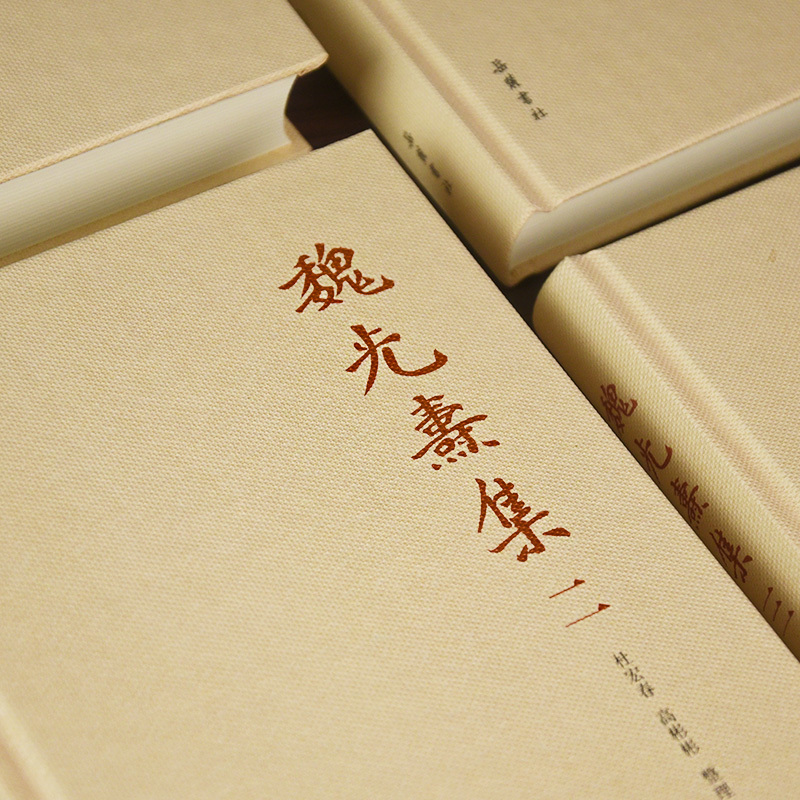 岳麓書社
岳麓書社
魏光燾集 二
杜宏春 高彬彬 整理
魏光燾集 三